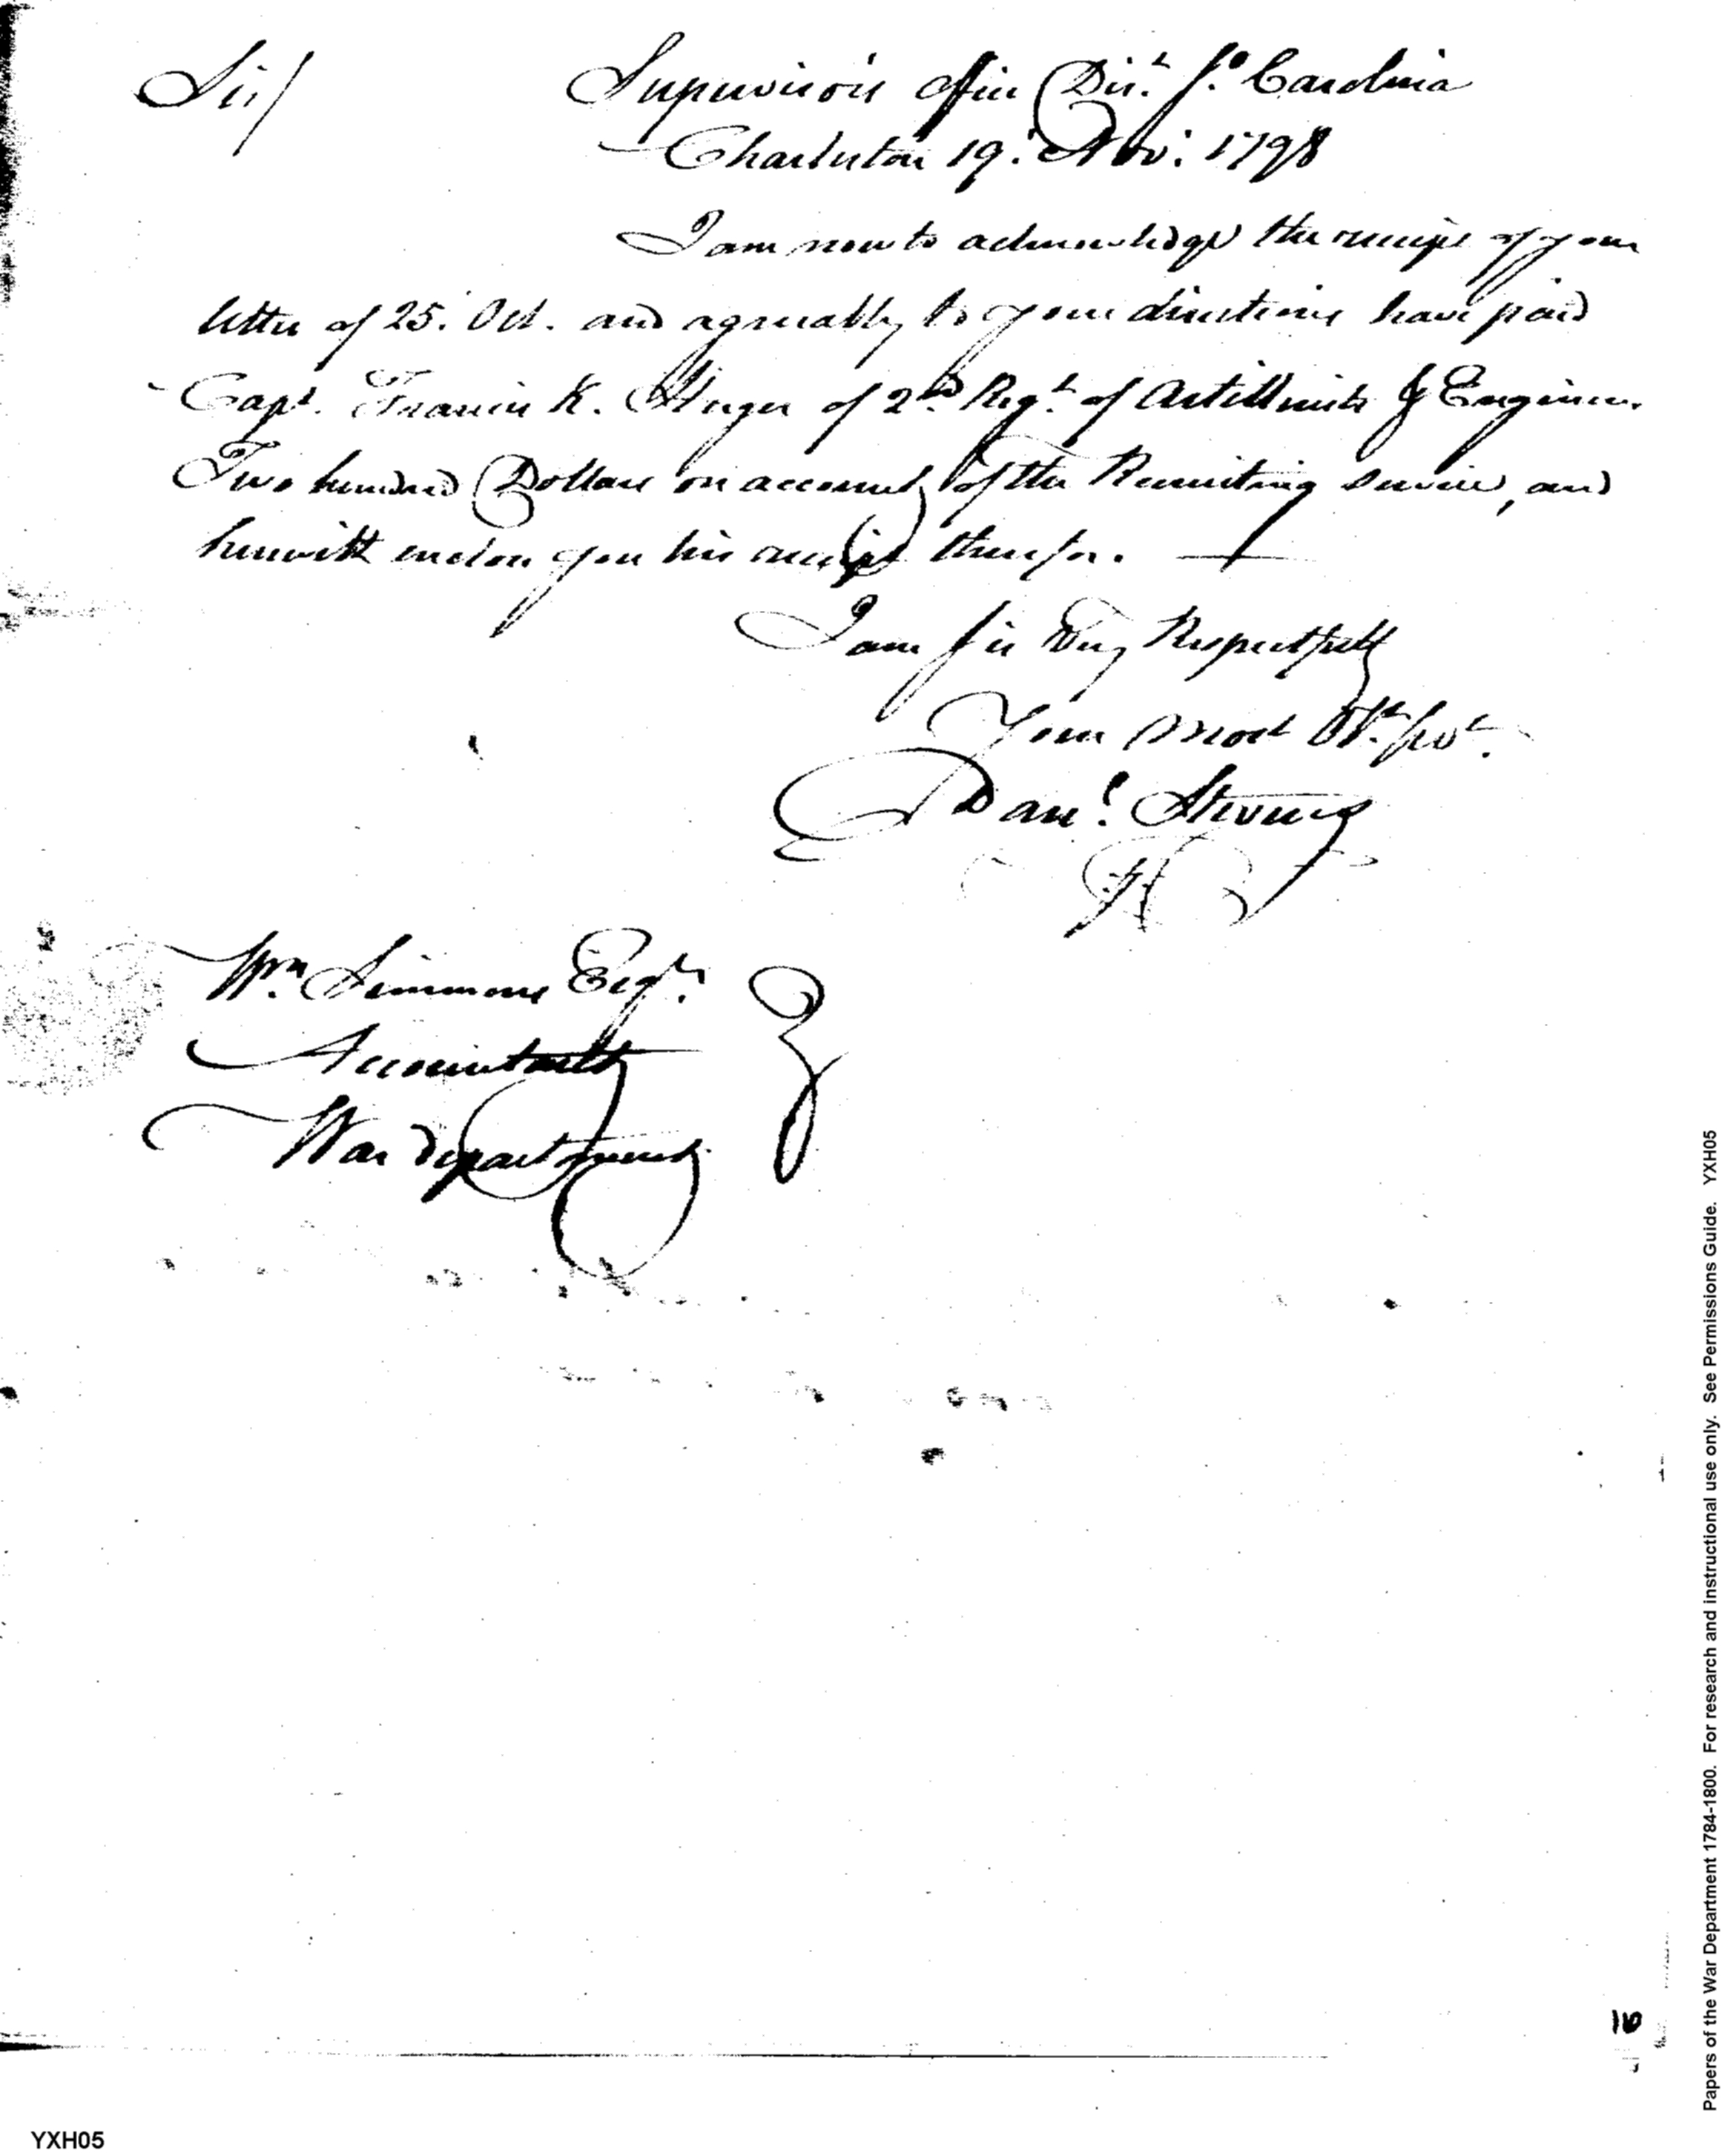 Sir/ Supervisor's Office Dist. So. Carolina
Charleston 19. Nov. 1798
I am now to acknowledge the receipt of your
letter of 25. Oct. and agreeably to your directions have paid
Capt. Francis K. Huger of 2nd. Regt. of Artillerists & Engineers
Two hundred Dollars on account of the Recruiting Service, and
herewith enclose you his receipt therefor.
I am Sir Very Respectfully
Your Most Obt. Servt.
Danl. Stevens
Wm. Simmons Esqr.
Accountant
War Department
16
YXH05
Papers of the War Department 1784-1800. For research and instructional use only. See Permissions Guide. YXH05